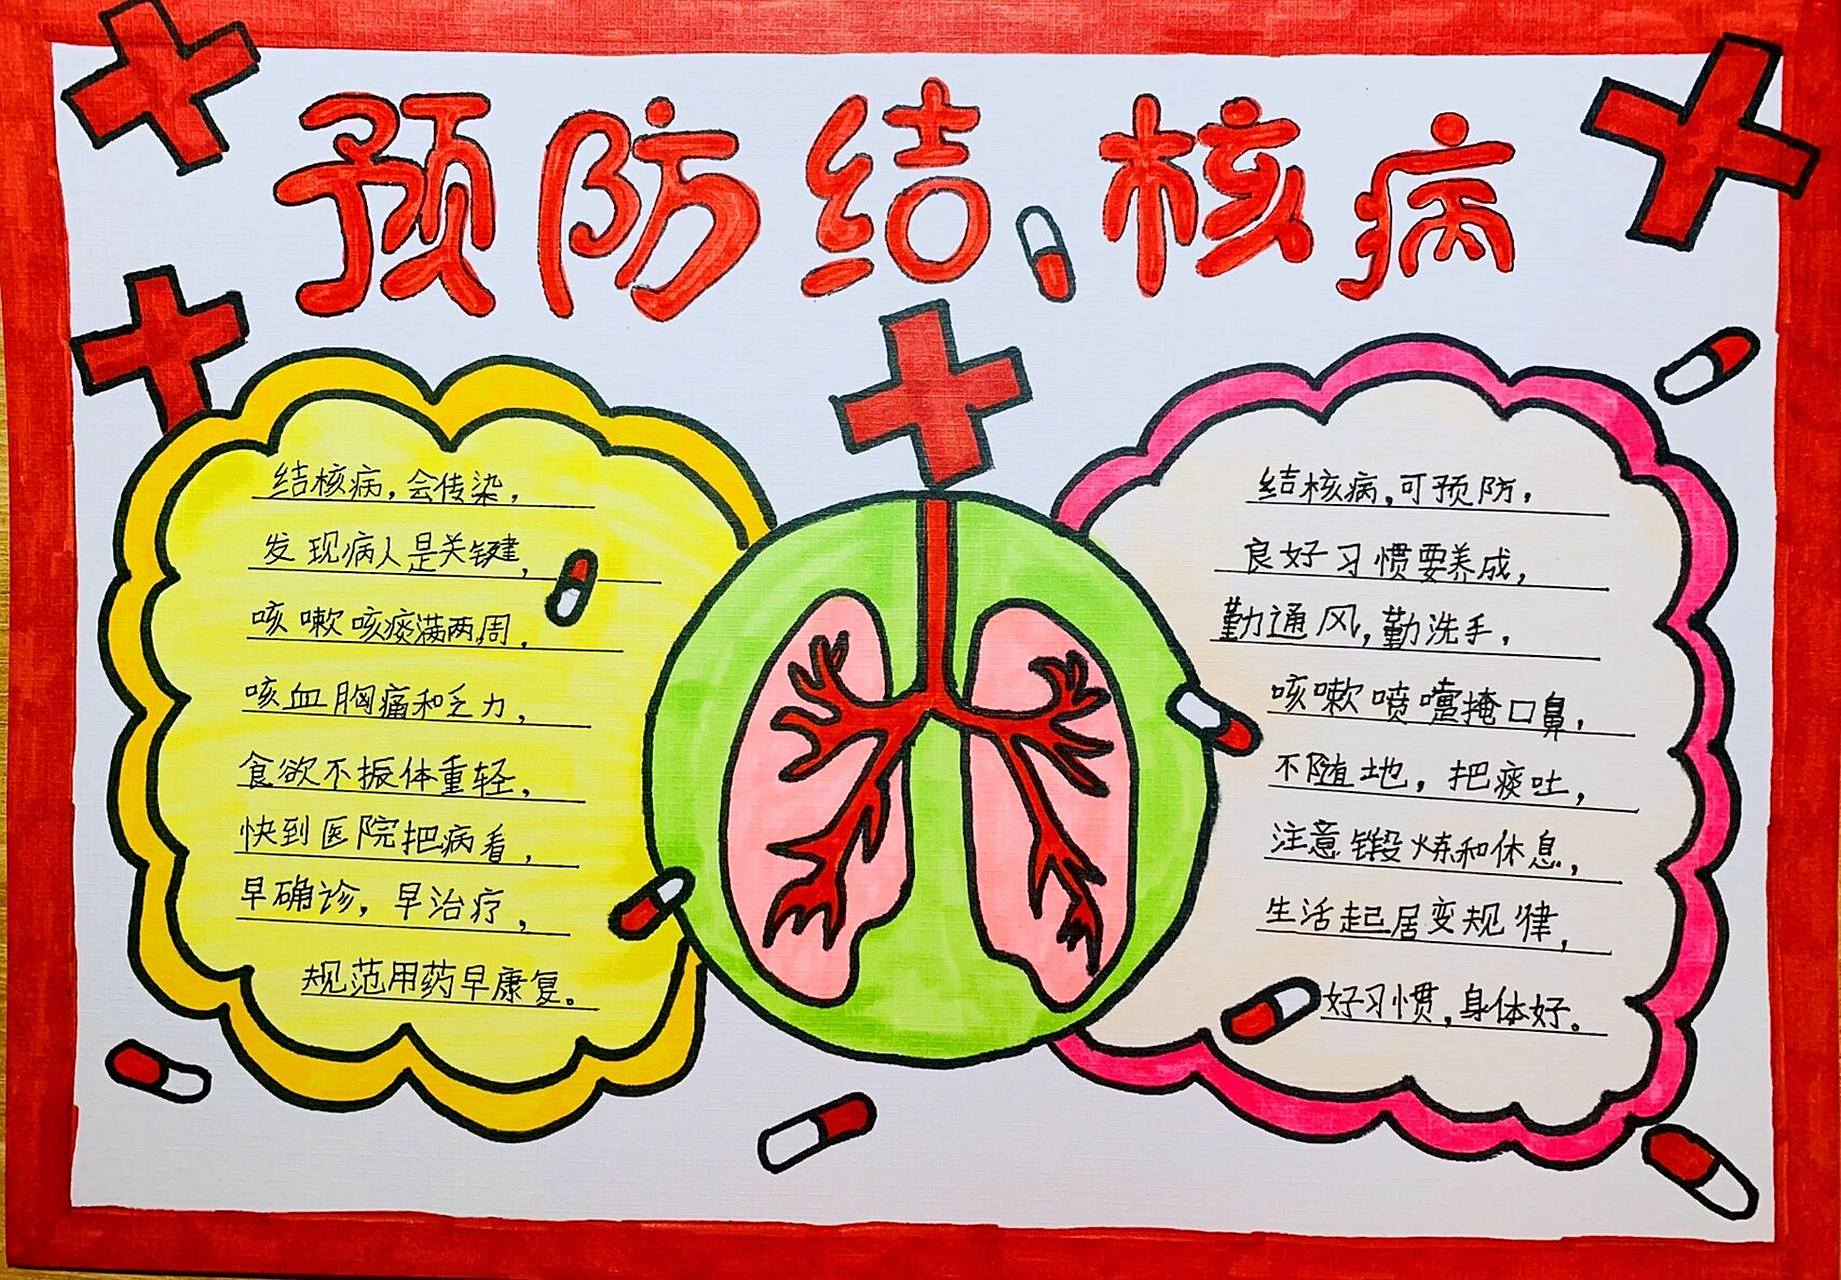 预防结核病
结核病,会传染,
发现病人是关键,
咳嗽咳痰满两周,
咳血胸痛和乏力,
食欲不振体重轻,
快到医院把病看,
早确诊,早治疗,
规范用药早康复。
结核病,可预防,
良好习惯要养成,
勤通风,勤洗手,
咳嗽喷嚏掩口鼻,
不随地,把痰吐,
注意锻炼和休息,
生活起居变规律,
好习惯,身体好。